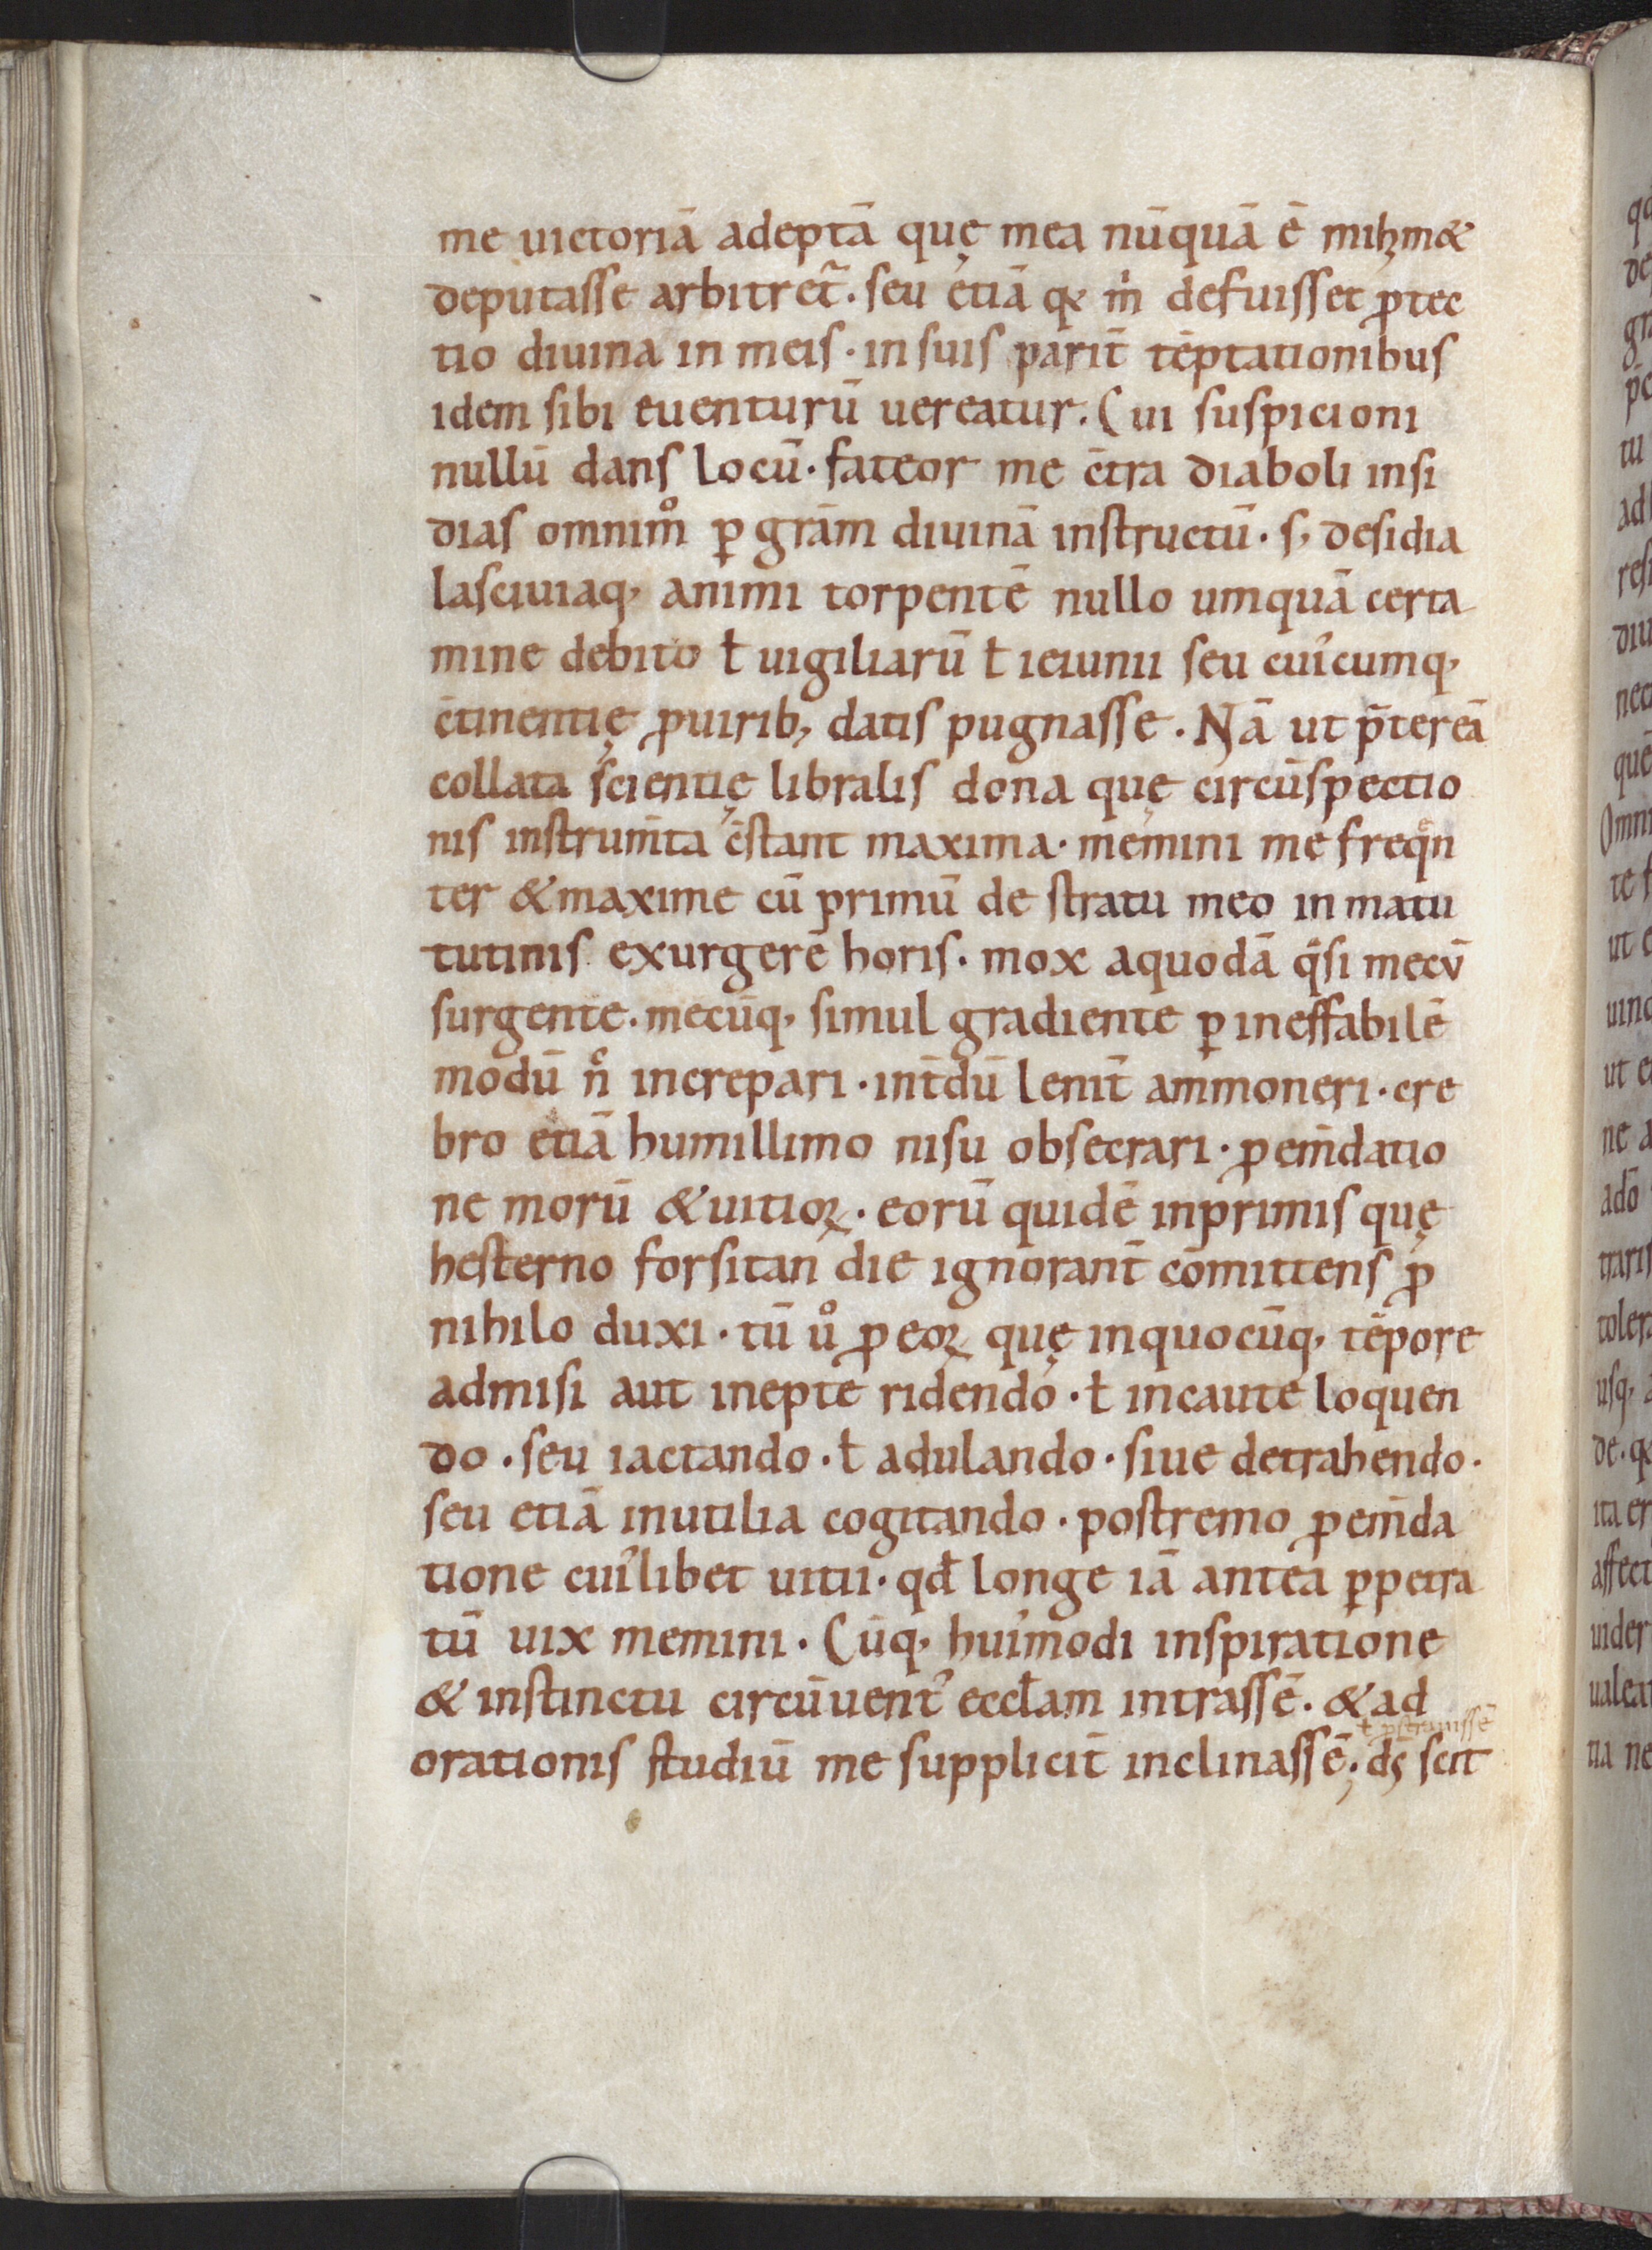 me uictoriā adeptā quę mea nūquā ē mihimet
deputasse arbitret᷑. seu etiā qͣ m̊ defuisset ꝓtec
tio diuina in meis · in suis parit̄ tēptationibus
idem sibi euenturū uereatur. Cui suspicioni
nullū dans locū · fateor me c̄tra diaboli insi
dias omnim̊ ꝑ grām diuinā instructū · s; desidia
lasciuiaq; animi torpentē nullo umquā certa
mine debito ł uigiliarū ł ieiunii seu cui᾽cumq;
c̄tinentię ꝓ uirib; datis pugnasse . Nā ut p̄tereā
collata scientię libralis dona quę circūspectio
nis instrum̄ta c̄stant maxima · memini me freqn̄
ter & maxime cū primū de stratu meo in matu
tutinis exurgerē horis · mox a quodā qͣsi mecū
surgente · mecūq; simul gradiente ꝑ ineffabilē
modū nͨ increpari · int̄dū lenit̄ ammoneri · cre
bro etiā humillimo nisu obsecrari · ꝓ em̄datio
ne morū & uitioꝝ · eorū quidē inprimis quę
hesterno forsitan die ignorant̄ cōmittens ꝓ
nihilo duxi · tū ů ꝓ eoꝝ quę in quocūq; tēpore
admisi aut inepte ridendo · ł incaute loquen
do · seu iactando · ł adulando · siue detrahendo ·
seu etiā inutilia cogitando · postremo ꝓ em̄da
tione cui᾽libet uitii · qđ longe iā antea ꝑpetra
tū uix memini · Cūq; hui᾽modi inspiratione
& instinctu circūuent᾽ eccłam intrassē · & ad
ł ꝓstrauissē
orationis studiū me supplicit̄ inclinassē; ds̄ scit